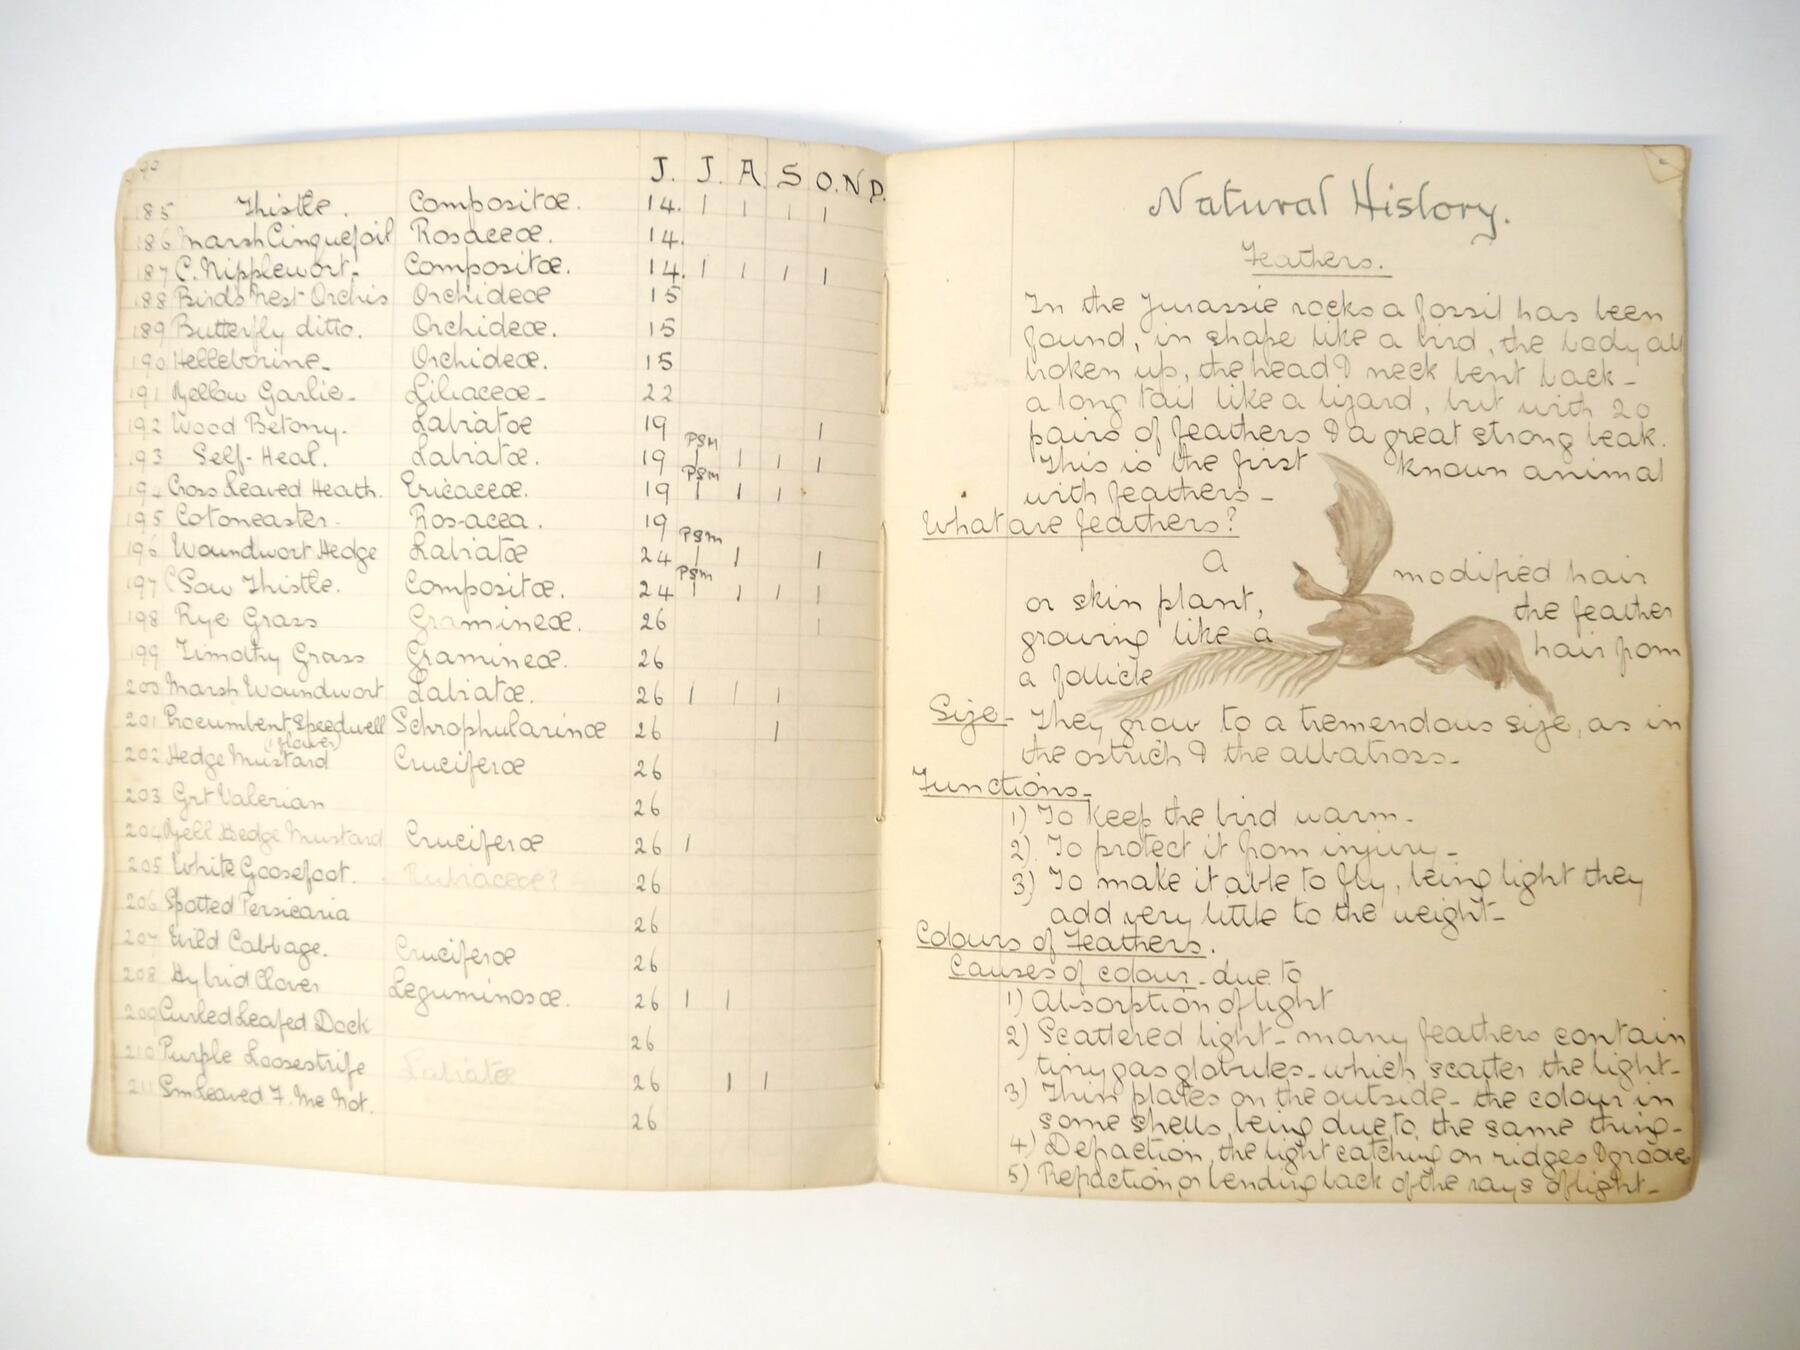 J. J. A. S O. N D.
185 Thistle. Compositæ. 14. 1 1 1 1
186 Marsh Cinquefoil Rosaceæ. 14.
187 C. Nipplewort- Compositæ. 14. 1 1 1 1
188 Bird's Nest Orchis Orchideæ 15
189 Butterfly ditto. Orchideæ. 15
190 Helleborine- Orchideæ. 15
191 Yellow Garlic- Liliaceæ- 22
192 Wood Betony. Labiatæ 19 1
193 Self-Heal. Labiatæ. 19 PSM 1 1 1 1
194 Cross Leaved Heath. Ericaceæ. 19 PSM 1 1 1
195 Cotoneaster- Rosacea. 19
196 Woundwort Hedge Labiatæ 24 PSM 1 1 1
197 (Sow Thistle. Compositæ. 24 PSM 1 1 1 1
198 Rye Grass Gramineæ. 26 1
199 Timothy Grass Gramineæ. 26
200 Marsh Woundwort Labiatæ. 26 1 1 1
201 Procumbent Speedwell Schrophularinæ 26 1
(flower)
202 Hedge Mustard Cruciferæ 26
203 Grt Valerian 26
204 Yell Hedge Mustard Cruciferæ 26 1
205 White Goosefoot. Rubiaceæ? 26
206 Spotted Persicaria 26
207 Wild Cabbage. Cruciferæ 26
208 Hybrid Clover Leguminosæ. 26 1 1
209 Curled Leafed Dock 26
210 Purple Loosestrife Labiatæ 26 1 1
211 Sm leaved F. Me Not. 26
Natural History.
Feathers.
In the Jurassic rocks a fossil has been
found, in shape like a bird, the body all
broken up, the head & neck bent back-
a long tail like a lizard, but with 20
pairs of feathers & a great strong beak.
This is the first known animal
with feathers-
What are feathers?
A modified hair
or skin plant, the feather
growing like a hair from
a follicle
Size- They grow to a tremendous size, as in
the ostrich & the albatross-
Functions-
1) To keep the bird warm-
2) To protect it from injury-
3) To make it able to fly, being light they
add very little to the weight-
Colours of Feathers.
Causes of colour- due to
1) Absorption of light
2) Scattered light- many feathers contain
tiny gas globules- which scatter the light-
3) Thin plates on the outside- the colour in
some shells, being due to, the same thing-
4) Defraction, the light catching on ridges &
5) Refraction, or bending back of the rays of light-